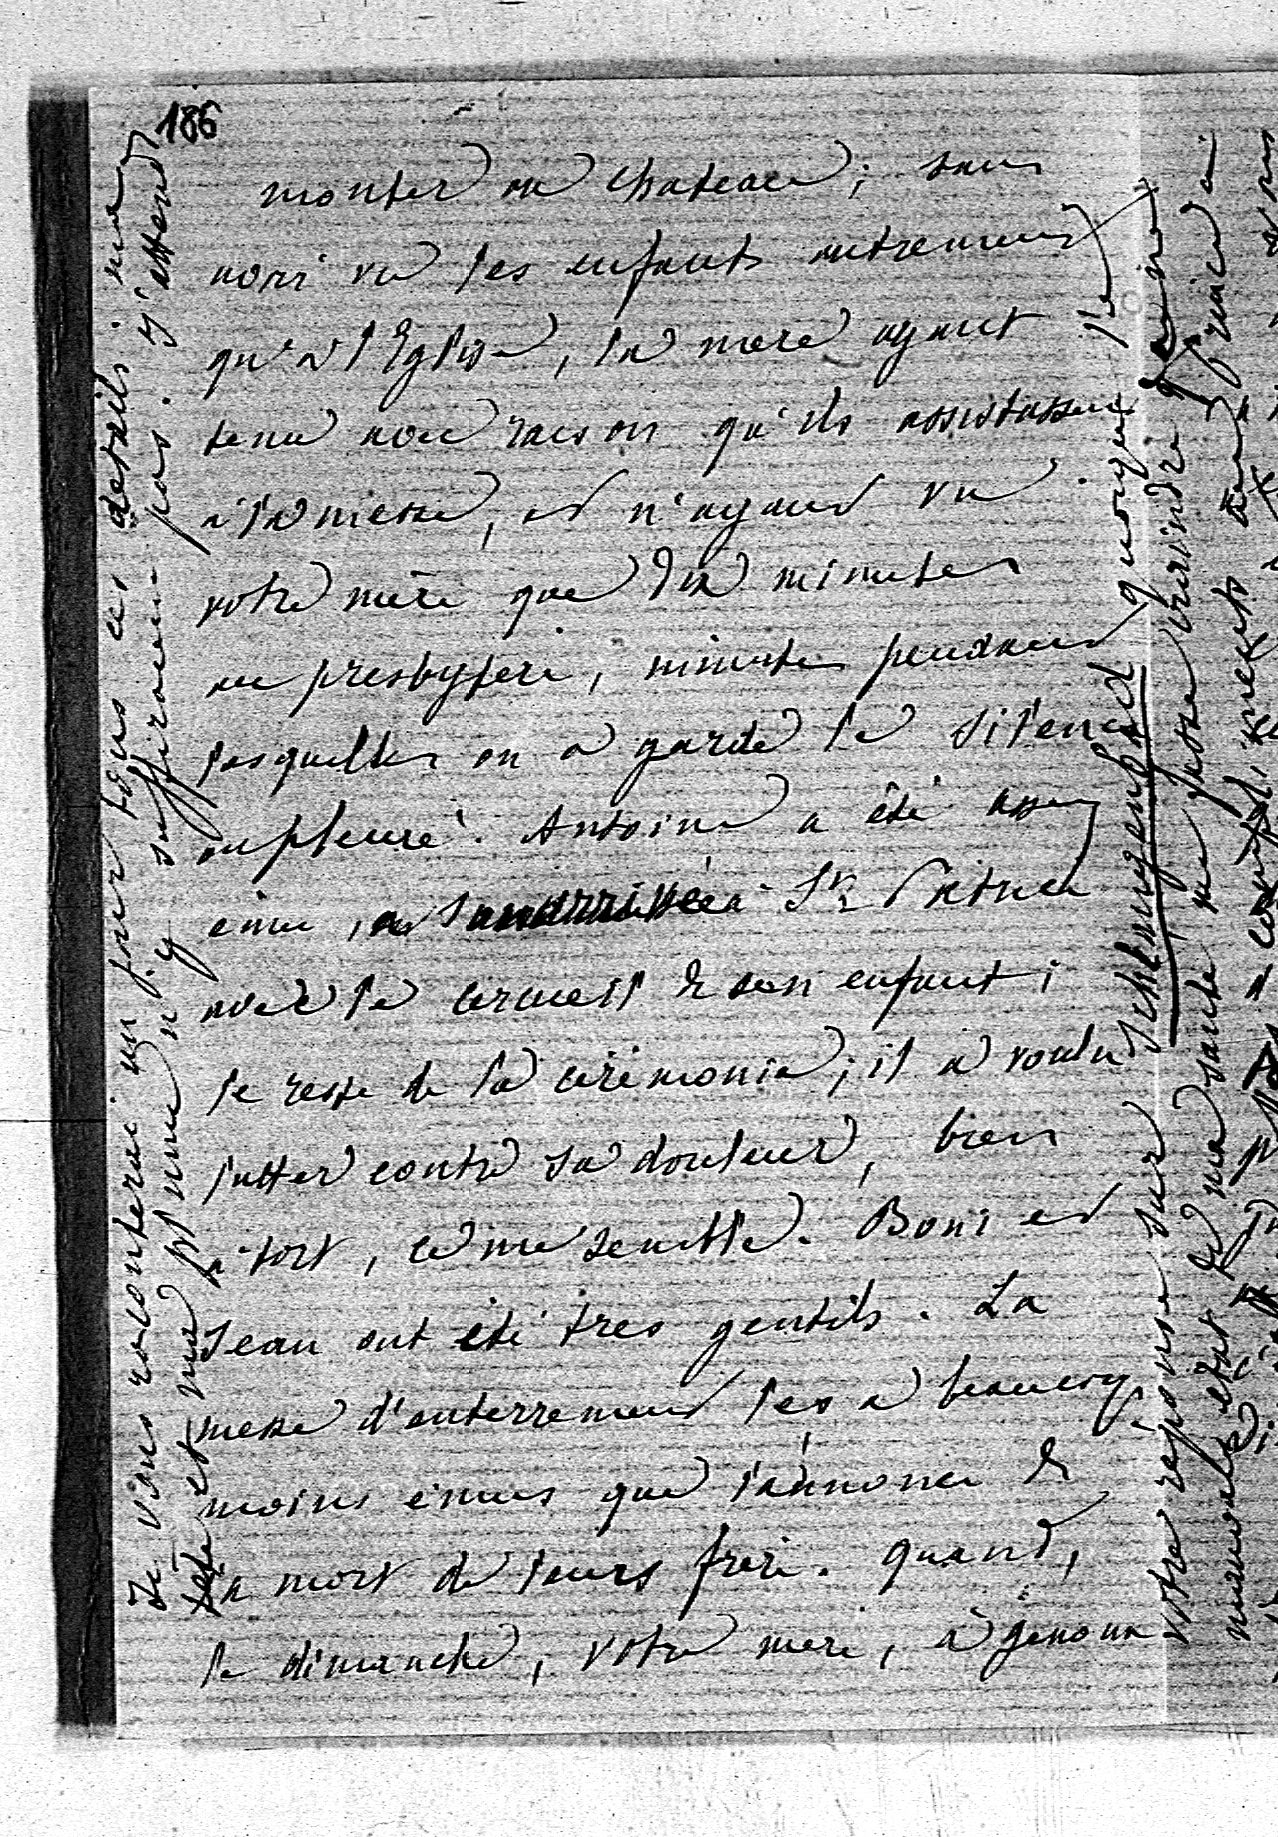 186
monter au chateau ; sans
avoir vu les enfants autrement
qu'à l'Eglise, la mère ayant
tenu avec raison qu'ils assistassent
à la messe, et n'ayant vu
votre mère que dix minutes
au presbytère, minutes pendant
lesquelles on a gardé le silence
ou pleuré. Antoine a été assez
ému, à l'arrivée à St Patrice
avec le cercueil de son enfant ;
le reste de la cérémonie ; il a voulu
lutter contre sa douleur, bien
à tort, ce me semble. Boni et
Jean ont été très gentils. La
messe d'enterrement les a beaucoup
moins émus que l'annonce de
la mort de leurs frère. quand,
le dimanche, votre mère, à genoux
Je vous raconterai un jour tous ces détails ; ma
tête et ma plume n'y suffiraient pas. J'attends
votre réponse sur Schlangenbad quoique le
mauvais état de ma santé me fasse craindre